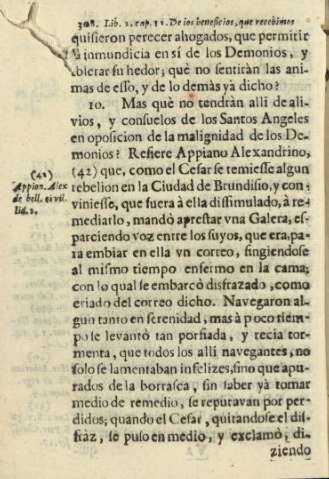 308. Lib. 2. cap. 11. De los beneficios, que recebimos
quisieron perecer ahogados, que permitir
la inmundicia en sí de los Demonios, y
tolerar su hedor; què no sentiràn las ani-
mas de esso, y de lo demàs yà dicho?
10. Mas què no tendràn alli de ali-
vios, y consuelos de los Santos Angeles
en oposicion de la malignidad de los De-
monios? Refiere Appiano Alexandrino,
(42) que, como el Cesar se temiesse algun
rebelion en la Ciudad de Brundisio, y con-
viniesse, que fuera à ella dissimulado, à re-
mediarlo, mandò aprestar vna Galera, es-
parciendo voz entre los suyos, que era, pa-
ra embiar en ella vn correo, fingiendose
al mismo tiempo enfermo en la cama;
con lo qual se embarcò disfrazado, como
criado del correo dicho. Navegaron al-
gun tanto en serenidad, mas à poco tiem-
po se levantò tan porfiada, y recia tor-
menta, que todos los alli navegantes, no
solo se lamentaban infelizes, sino que apu-
rados de la borrasca, sin saber yà tomar
medio de remedio, se reputavan por per-
didos; quando el Cesar, quitandose el dis-
fràz, se puso en medio, y exclamò, di-
ziendo
(42)
Appion. Alex
de bell. civil.
lib. 2.